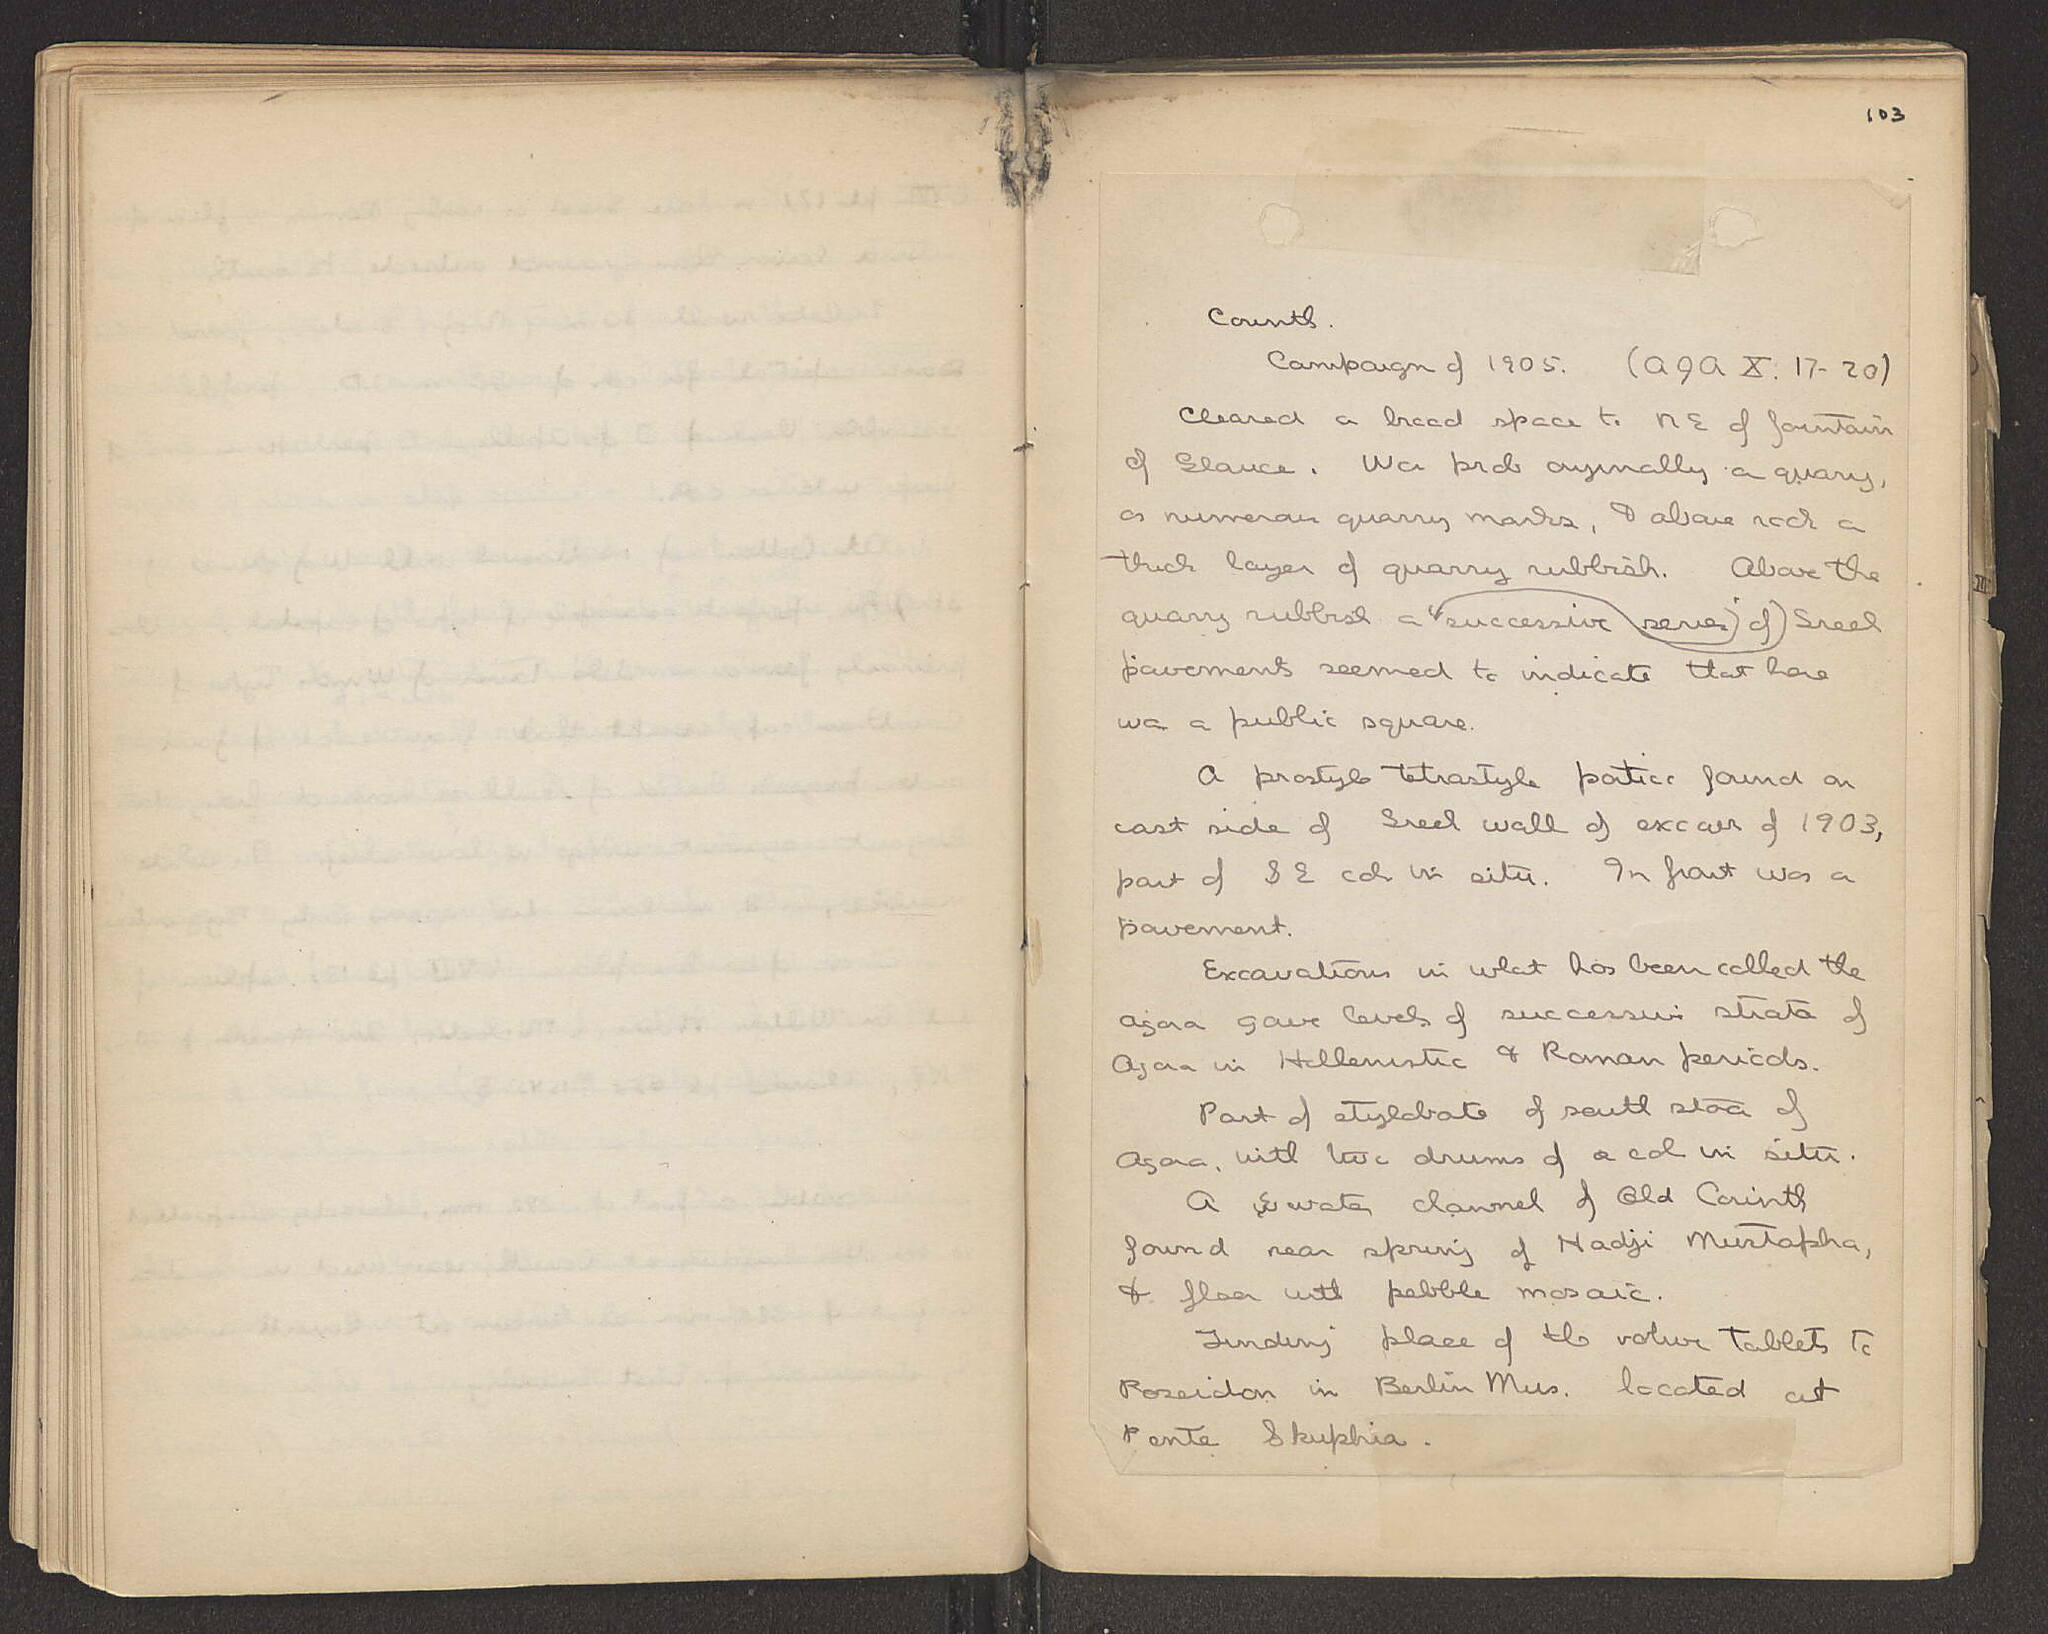 103
Corinth.
Campaign of 1905. (AJA X. 17-20)
Cleared a broad space to NE of fountain
of Glauce. Was prob originally a quarry,
as numerous quarry marks, & above rock a
thick layer of quarry rubbish. Above the
quarry rubbish a successive series of Greek
pavements seemed to indicate that here
was a public square.
A prostyle tetrastyle portico found on
east side of Greek wall of excavs of 1903,
part of SE col in situ. In front was a
pavement.
Excavations in what has been called the
agora gave levels of successive strata of
Agora in Hellenistic & Roman periods.
Part of stylobate of south stoa of
Agora, with two drums of a col in situ.
A water channel of Old Corinth
found near spring of Hadji Mustapha,
& floor with pebble mosaic.
Finding place of the votive tablets to
Poseidon in Berlin Mus. located at
Pente Skuphia.